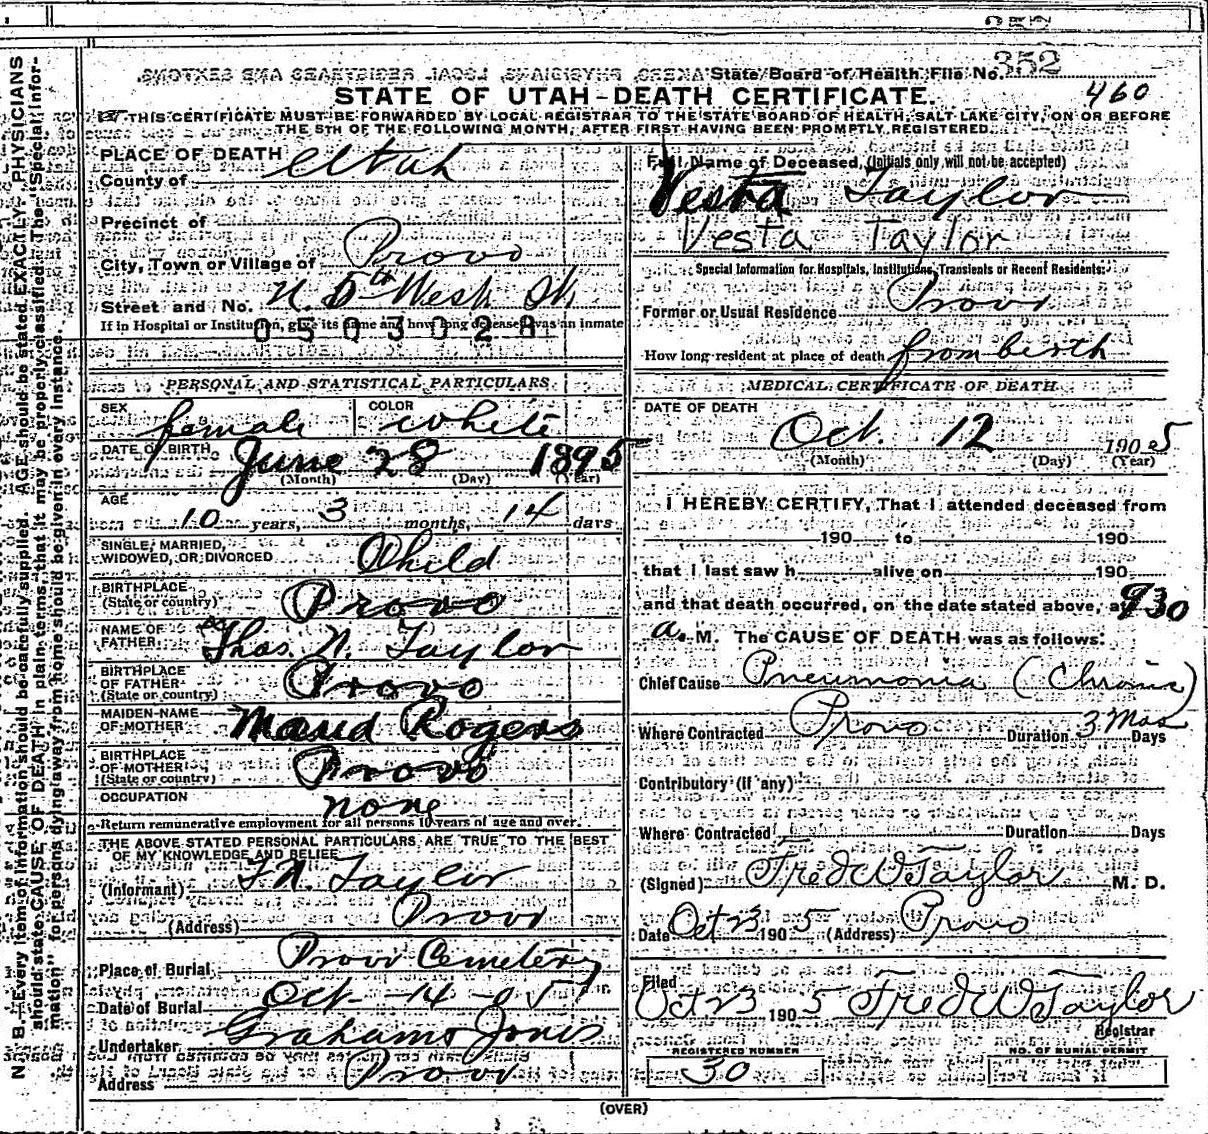 352
State Board of Health File No. 352
STATE OF UTAH-DEATH CERTIFICATE. 460
THIS CERTIFICATE MUST BE FORWARDED BY LOCAL REGISTRAR TO THE STATE BOARD OF HEALTH, SALT LAKE CITY, ON OR BEFORE
THE 5TH OF THE FOLLOWING MONTH, AFTER FIRST HAVING BEEN PROMPTLY REGISTERED.
N. B.-Every item of information should be carefully supplied. AGE should be stated EXACTLY. PHYSICIANS
should state CAUSE OF DEATH in plain terms that it may be properly classified. The "Special Infor-
mation" for persons dying away from home should be given in every instance.
PLACE OF DEATH
County of Utah
Precinct of
City, Town or Village of Provo
Street and No. N. 5th West St
If in Hospital or Institution, give its name and how long deceased was an inmate
0503028
PERSONAL AND STATISTICAL PARTICULARS
SEX female COLOR white
DATE OF BIRTH June 28 1895
(Month) (Day) (Year)
AGE
10 years, 3 months, 14 days
SINGLE, MARRIED,
WIDOWED, OR DIVORCED Child
BIRTHPLACE
(State or country) Provo
NAME OF
FATHER Thos. N. Taylor
BIRTHPLACE
OF FATHER
(State or country) Provo
MAIDEN NAME
OF MOTHER Maud Rogers
BIRTHPLACE
OF MOTHER
(State or country) Provo
OCCUPATION
none
Return remunerative employment for all persons 10 years of age and over.
THE ABOVE STATED PERSONAL PARTICULARS ARE TRUE TO THE BEST
OF MY KNOWLEDGE AND BELIEF
(Informant) T. N. Taylor
(Address) Provo
Place of Burial Provo Cemetery
Date of Burial Oct-14-05
Undertaker Graham & Jones
Address Provo
Full Name of Deceased, (Initials only will not be accepted)
Vesta Taylor
Vesta Taylor
Special Information for Hospitals, Institutions, Transients or Recent Residents:
Former or Usual Residence Provo
How long resident at place of death from birth
MEDICAL CERTIFICATE OF DEATH
DATE OF DEATH
Oct. 12 1905
(Month) (Day) (Year)
I HEREBY CERTIFY, That I attended deceased from
190 to 190
that I last saw h alive on 190
and that death occurred, on the date stated above, at 930
a. M. The CAUSE OF DEATH was as follows:
Chief Cause Pneumonia (Chronic)
Where Contracted Provo Duration 3 Mos Days
Contributory (if any)
Where Contracted Duration Days
(Signed) Fred W Taylor M. D.
Date Oct 23 1905 (Address) Provo
Filed
Oct 23 1905 Fred W Taylor
Registrar
REGISTERED NUMBER
30
NO. OF BURIAL PERMIT
(OVER)